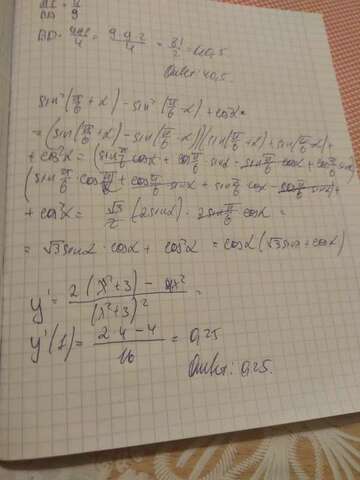 9
BD = = 9·9·2 / 4 = 81 / 2 = 40,5
Ответ: 40,5
sin²(π/6 + α) - sin²(π/6 - α) + cos²α =
= (sin(π/6 + α) - sin(π/6 - α))(sin(π/6 + α) + sin(π/6 - α)) +
+ cos²α = (sin π/6 cosα + cos π/6 · sinα - sin π/6 cosα + cos π/6 sinα)
(sin π/6 · cosα + cos π/6 sinα + sin π/6 cosα - cos π/6 sinα) +
+ cos²α = √3/2 (2sinα) · 2sin π/6 cosα =
= √3 sinα · cosα + cos²α = cosα (√3 sinα + cosα)
y' = 2(x²+3) - 4x² / (x²+3)² =
y'(1) = 2·4 - 4 / 16 = 0,25
Ответ: 0,25.